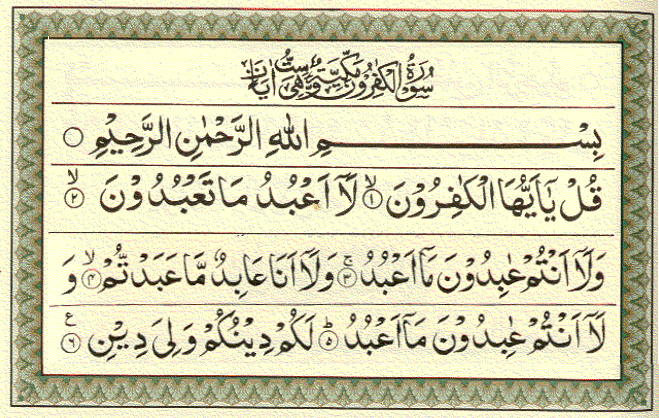 سُوْرَةُ الْكٰفِرُوْنَ مَكِّيَّةٌ وَّهِيَ سِتُّ اٰيَاتٍ
بِسْمِ اللهِ الرَّحْمٰنِ الرَّحِيْمِ ۝
قُلْ يٰۤاَيُّهَا الْكٰفِرُوْنَ ۙ﴿۱﴾ لَاۤ اَعْبُدُ مَا تَعْبُدُوْنَ ۙ﴿۲﴾
وَلَاۤ اَنْتُمْ عٰبِدُوْنَ مَاۤ اَعْبُدُ ۚ﴿۳﴾ وَلَاۤ اَنَا عَابِدٌ مَّا عَبَدْتُّمْ ۙ﴿۴﴾ وَ
لَاۤ اَنْتُمْ عٰبِدُوْنَ مَاۤ اَعْبُدُ ؕ﴿۵﴾ لَكُمْ دِيْنُكُمْ وَلِيَ دِيْنِ ﴿۶﴾ ع